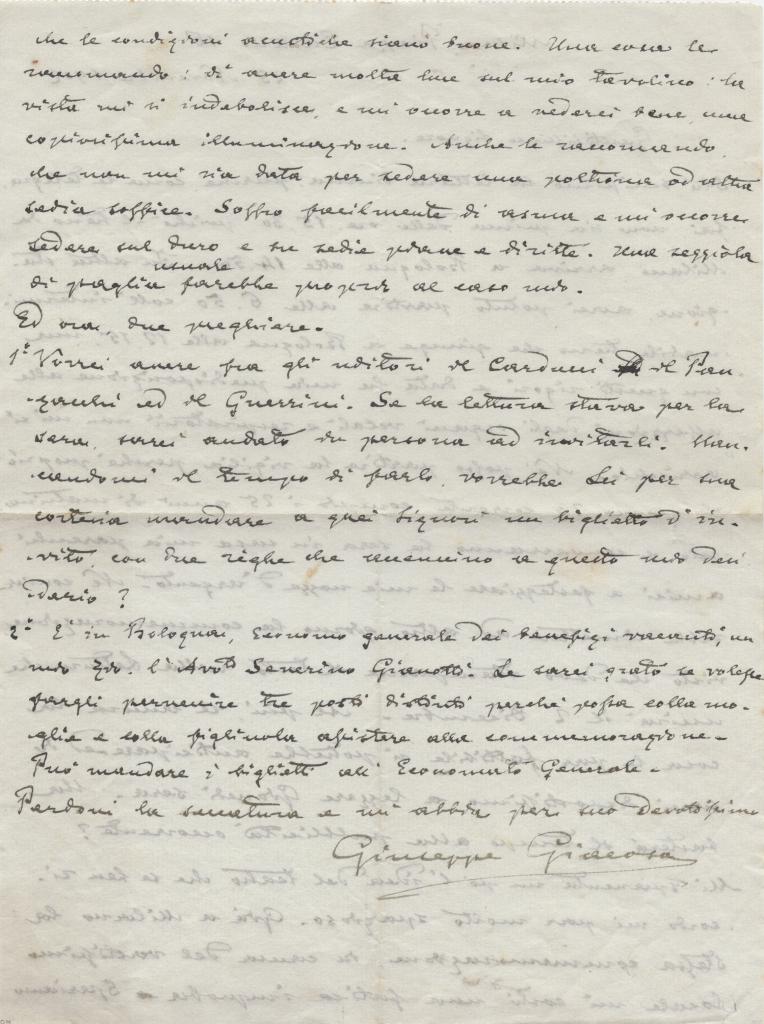 che le condizioni acustiche siano buone. Una cosa le
raccomando: di avere molta luce sul mio tavolino: la
vista mi si indebolisce, e mi occorre a vederci bene, una
copiosissima illuminazione. Anche le raccomando
che non mi sia data per sedere una poltrona od altra
sedia soffice. Soffro facilmente di asma e mi occorre
sedere sul duro e su sedie piane e diritte. Una seggiola
usuale
di paglia farebbe proprio al caso mio.
Ed ora, due preghiere.
1° Vorrei avere fra gli uditori il Carducci il Pan-
zacchi ed il Guerrini. Se la lettura stava per la
sera, sarei andato in persona ad invitarli. Man-
candomi il tempo di farlo, vorrebbe Lei per sua
cortesia mandare a quei Signori un biglietto d'in-
vito, con due righe che accennino a questo mio desi
derio?
2° E' in Bologna, Economo generale dei benefizi vacanti, un
mio zio. l'Avvto Severino Gianotti. Le sarei grato se volesse
fargli pervenire tre posti distinti perchè possa colla mo-
glie e colla figliuola assistere alla commemorazione.
Può mandare i biglietti all'Economato Generale.
Perdoni la seccatura e mi abbia per suo Devotissimo
Giuseppe Giacosa